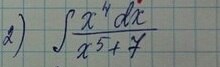 2) ∫ x⁴ dx / x⁵ + 7